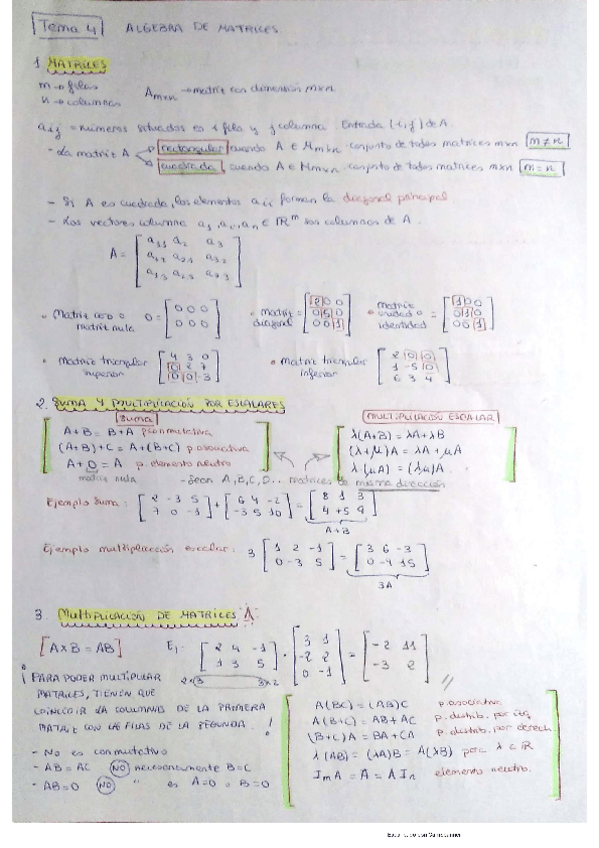 Tema 4 ALGEBRA DE MATRICES
1 MATRICES
m → filas
n → columnas
A m×n → matriz con dimensión m×n
aij = números situados es i fila y j columna. Entrada (i,j) de A.
- La matriz A → rectangular cuando A ∈ Mm×n conjunto de todas matrices m×n m ≠ n
→ cuadrada cuando A ∈ Mm×n conjunto de todas matrices m×n m = n
- Si A es cuadrada, los elementos aii forman la diagonal principal
- Los vectores columna a1, a2, an ∈ ℝm son columnas de A.
A =
· Matriz cero o matriz nula 0 = [0 0 0
0 0 0]
· matriz diagonal = [2 0 0
0 5 0
0 0 1]
· matriz unidad o identidad = [1 0 0
0 1 0
0 0 1]
· Matriz triangular superior [4 3 0
0 2 7
0 0 -3]
· Matriz triangular inferior [2 0 0
1 -5 0
6 3 4]
2. SUMA Y MULTIPLICACIÓN POR ESCALARES
SUMA
A+B = B+A p.conmutativa
(A+B)+C = A+(B+C) p.asociativa
A+0 = A p. elemento neutro
matriz nula
MULTIPLICACIÓN ESCALAR
λ(A+B) = λA+λB
(λ+μ)A = λA+μA
λ(μA) = (λμ)A
- Sean A,B,C,D... matrices de misma dirección
Ejemplo suma: [2 -3 5
7 0 -1] + [6 4 -2
-3 5 10] = [8 1 3
4 +5 9]
A+B
Ejemplo multiplicación escalar: 3 [1 2 -1
0 -3 5] = [3 6 -3
0 -9 15]
3A
3. MULTIPLICACIÓN DE MATRICES
[A×B = AB]
Ej. [2 4 -1
1 3 5] · [3 1
-2 2
0 -1] = [-2 11
-3 2]
2×3 3×2
¡ PARA PODER MULTIPLICAR
MATRICES, TIENEN QUE
COINCIDIR LA COLUMNAS DE LA PRIMERA
MATRIZ CON LAS FILAS DE LA SEGUNDA. !
- No es conmutativo
- AB = AC NO necesariamente B=C
- AB=0 NO " es A=0 o B=0
A(BC) = (AB)C p.asociativa
A(B+C) = AB+AC p. distrib. por izq
(B+C)A = BA+CA p. distrib. por derech
λ(AB) = (λA)B = A(λB) para λ ∈ ℝ
ImA = A = AIn elemento neutro.